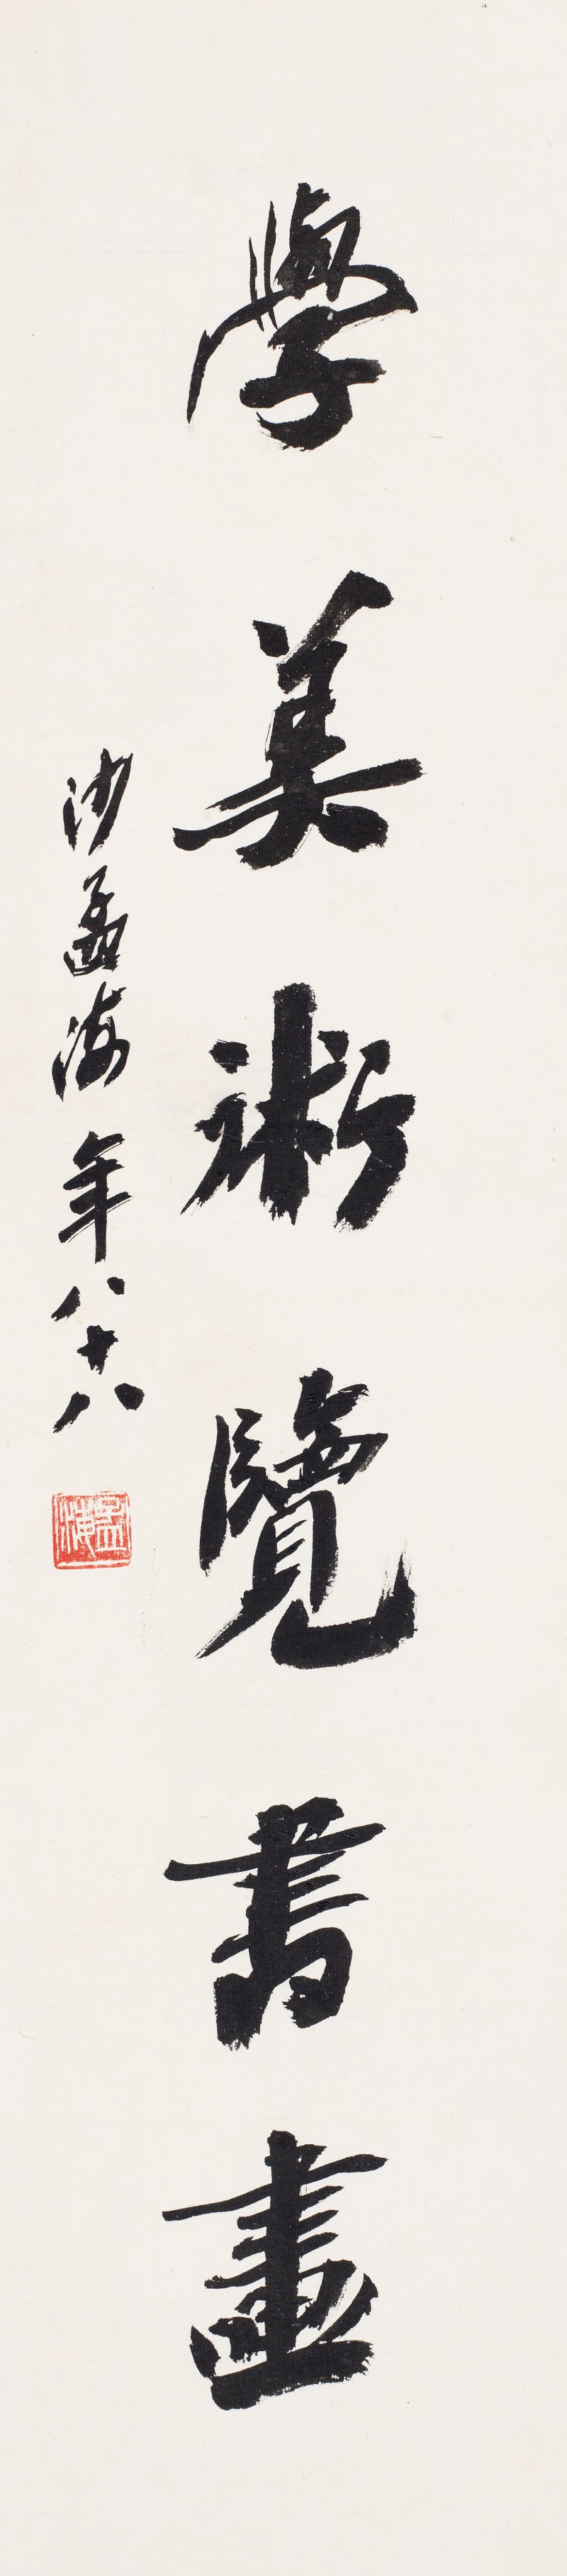 學美術覽書畫
沙孟海年八十八
孟海